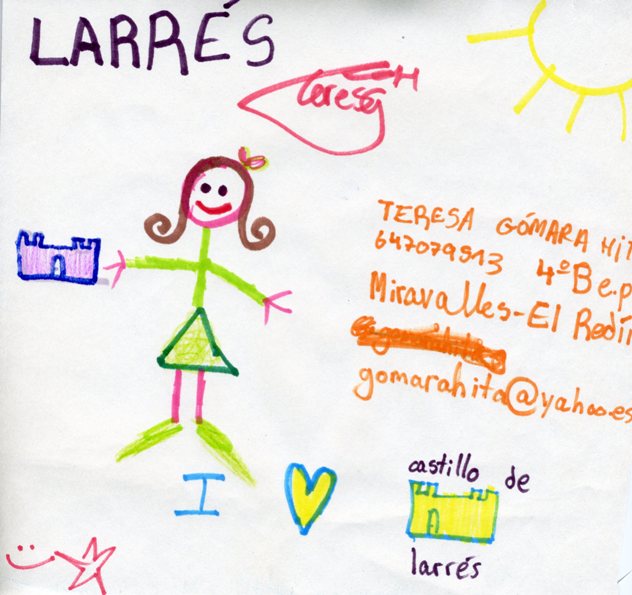 LARRÉS
Teresa H
TERESA GÓMARA HIT
647079513 4º B e.p
Miravalles-El Redí
gomarahita@yahoo.es
I
castillo de
larrés